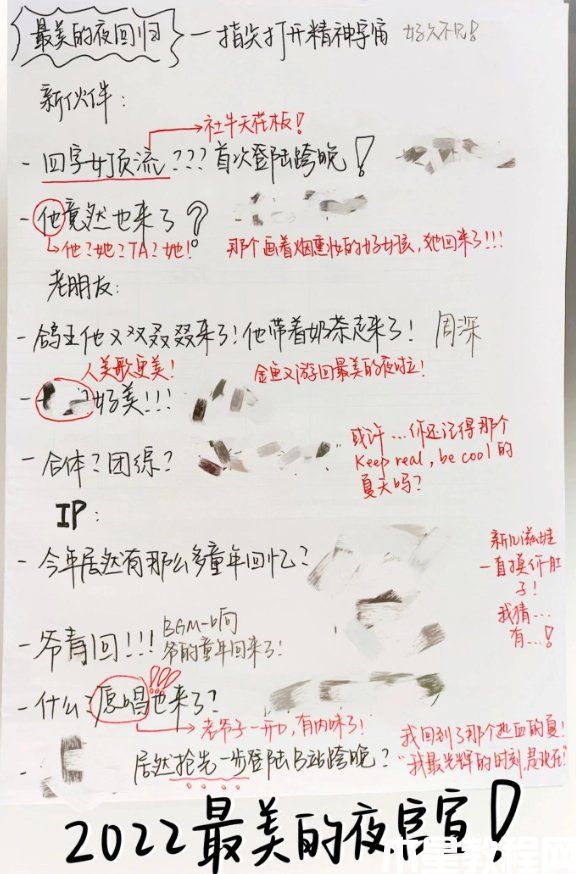 最美的夜回归 一指尖打开精神宇宙 好久不见!
新伙伴:
社牛天花板!
- 四字女顶流???首次登陆跨晚!
- 他竟然也来了?
他?她?TA?她! 那个画着烟熏妆的好女孩,她回来了!!!
老朋友:
- 鸽王他又双叒叕来了!他带着奶茶走来了! 周深
人美歌更美! 金鱼又游回最美的夜啦!
- 好美!!!
- 合体?团综?
或许...你还记得那个
Keep real, be cool的
夏天吗?
IP:
- 今年居然有那么多童年回忆?
新儿滋娃
一直摸作肚
子!
我猜...
有...!
- 爷青回!!! BGM一响
爷的童年回来了!
- 什么?原唱也来了?
老爷子一开口,有内味了!
我回到了那个热血的夏!
- 居然抢先一步登陆B站跨晚?
"我最光辉的时刻,是现在!"
2022最美的夜官宣!